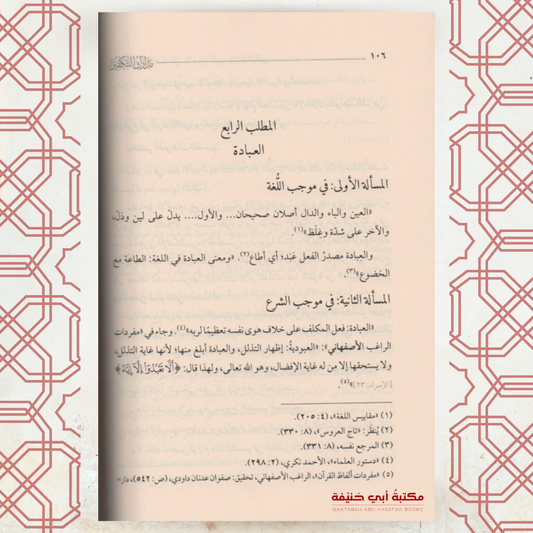 ١٠٦
المطلب الرابع
العبادة
المسألة الأولى: في موجب اللُّغة
«العين والباء والدال أصلان صحيحان... والأول.... يدلّ على لين وذلّ،
والآخر على شدّة وغِلظ»(١).
والعبادة مصدرُ الفعل عَبَد؛ أي أطاع(٢). «ومعنى العبادة في اللغة: الطاعة مع
الخضوع»(٣).
المسألة الثانية: في موجب الشرع
«العبادة: فعل المكلف على خلاف هوى نفسه تعظيمًا لربه»(٤). وجاء في «مفردات
الراغب الأصفهاني»: «العبوديةُ: إظهار التذلل، والعبادة أبلغ منها؛ لأنها غاية التذلل،
ولا يستحقها إلا من له غاية الإفضال، وهو الله تعالى، ولهذا قال: ﴿أَلَّا تَعْبُدُوٓا۟ إِلَّآ إِيَّاهُ﴾
[الإسراء: ٢٣]»(٥).
(١) «مقاييس اللغة»، (٤: ٢٠٥).
(٢) يُنظَر: «تاج العروس»، (٨: ٣٣٠).
(٣) المرجع نفسه، (٨: ٣٣١).
(٤) «دستور العلماء»، الأحمد نكري، (٢: ٢٩٨).
(٥) «مفردات ألفاظ القرآن»، الراغب الأصفهاني، تحقيق: صفوان عدنان داودي، (ص: ٥٤٢)، دار-
مكتبة أبي حنيفة
MAKTABAH ABU HANIFAH BOOKS